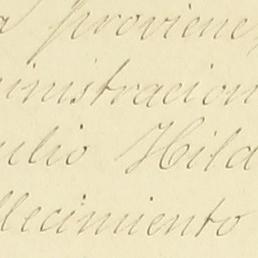 a proviene
inistracion
ulio Hild
llecimiento